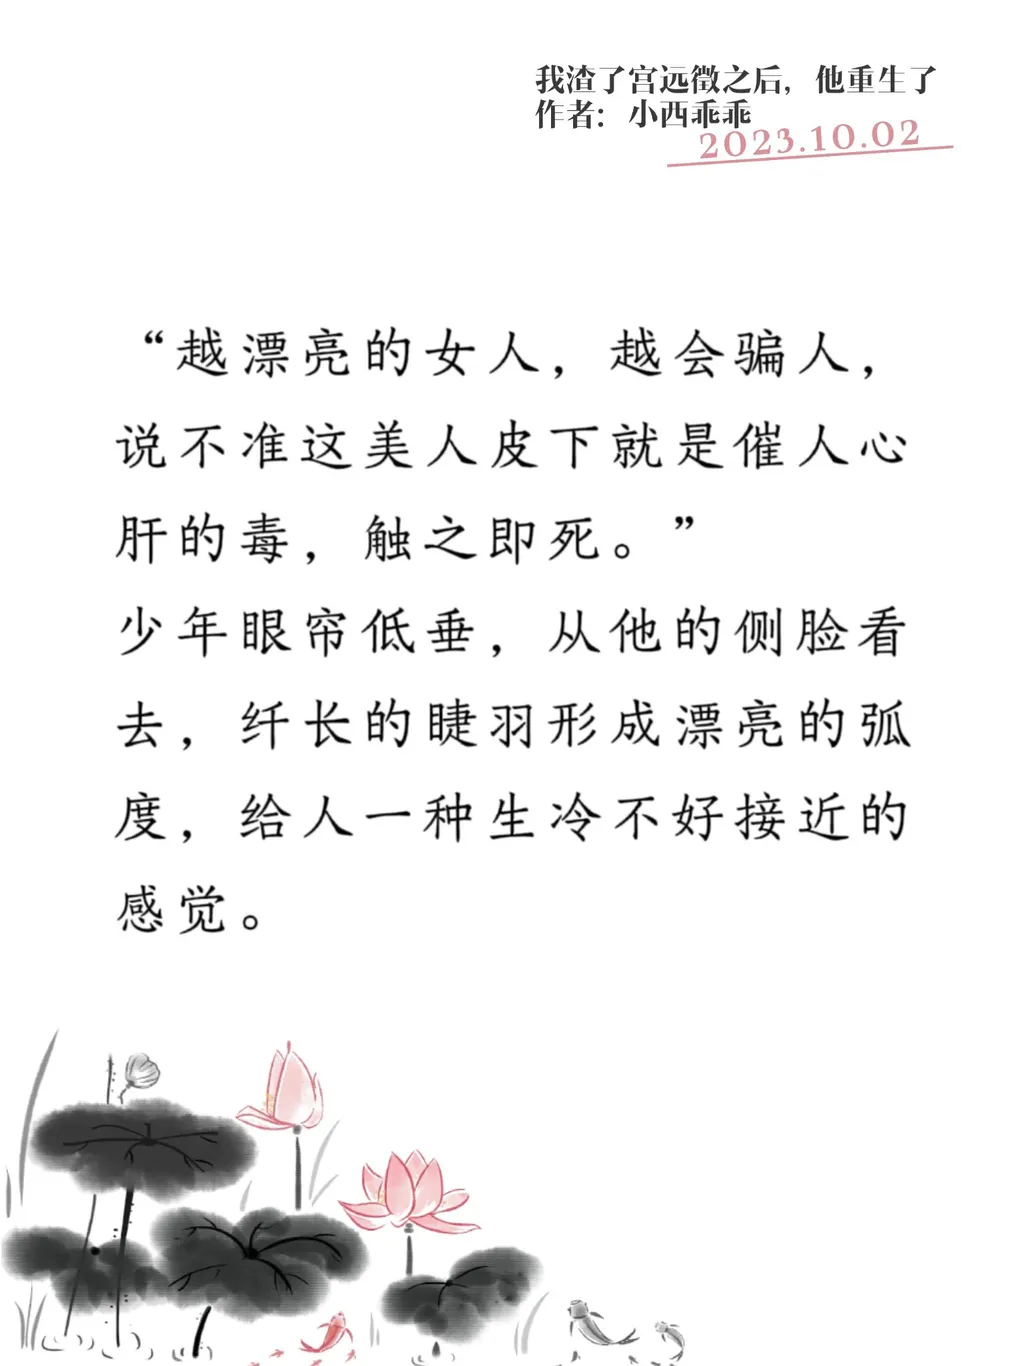 我渣了宫远徵之后，他重生了
作者：小西乖乖
2023.10.02
“越漂亮的女人，越会骗人，
说不准这美人皮下就是催人心
肝的毒，触之即死。”
少年眼帘低垂，从他的侧脸看
去，纤长的睫羽形成漂亮的弧
度，给人一种生冷不好接近的
感觉。